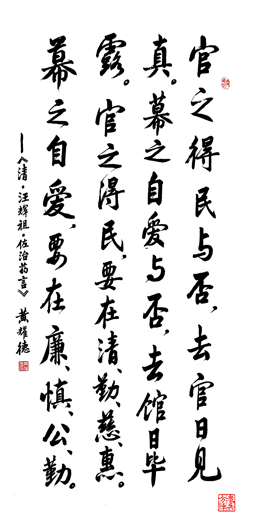 官之得民与否，去官日见
真。幕之自爱与否，去馆日毕
露。官之得民，要在清、勤、慈、惠。
幕之自爱，要在廉、慎、公、勤。
——《清·汪辉祖·佐治药言》 黄耀德